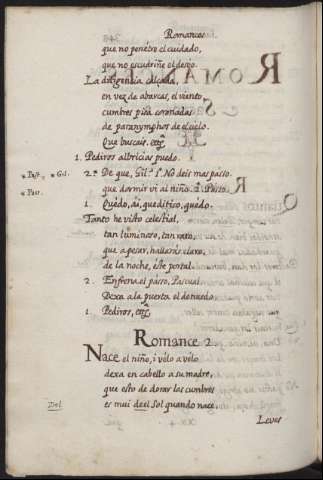 Romances
que no penetre el cuidado,
que no escudriñe el deseo.
La diligencia calçada,
en vez de abarcas, el viento,
cumbres pisa coronadas
de paranymphos de el cielo.
Que buscais, etc.
1. Pediros albricias puedo.
2.º De que, Gil? 1.º No deis mas passo.
que dormir vi al niño. 2. Passo.
1. Quedo, ai, quedito, quedo.
Tanto he visto celestial,
tan luminoso, tan raro,
que a pesar, hallarás, claro,
de la noche, este portal.
2. Enfrena el passo, Pascual
Dexa a la puerta el denuedo.
1. Pediros, etc.
Romance 2.
Nace el niño, i velo a velo
dexa en cabello a su madre,
que esto de dorar las cumbres
es mui de el Sol quando nace.
Del
Leves